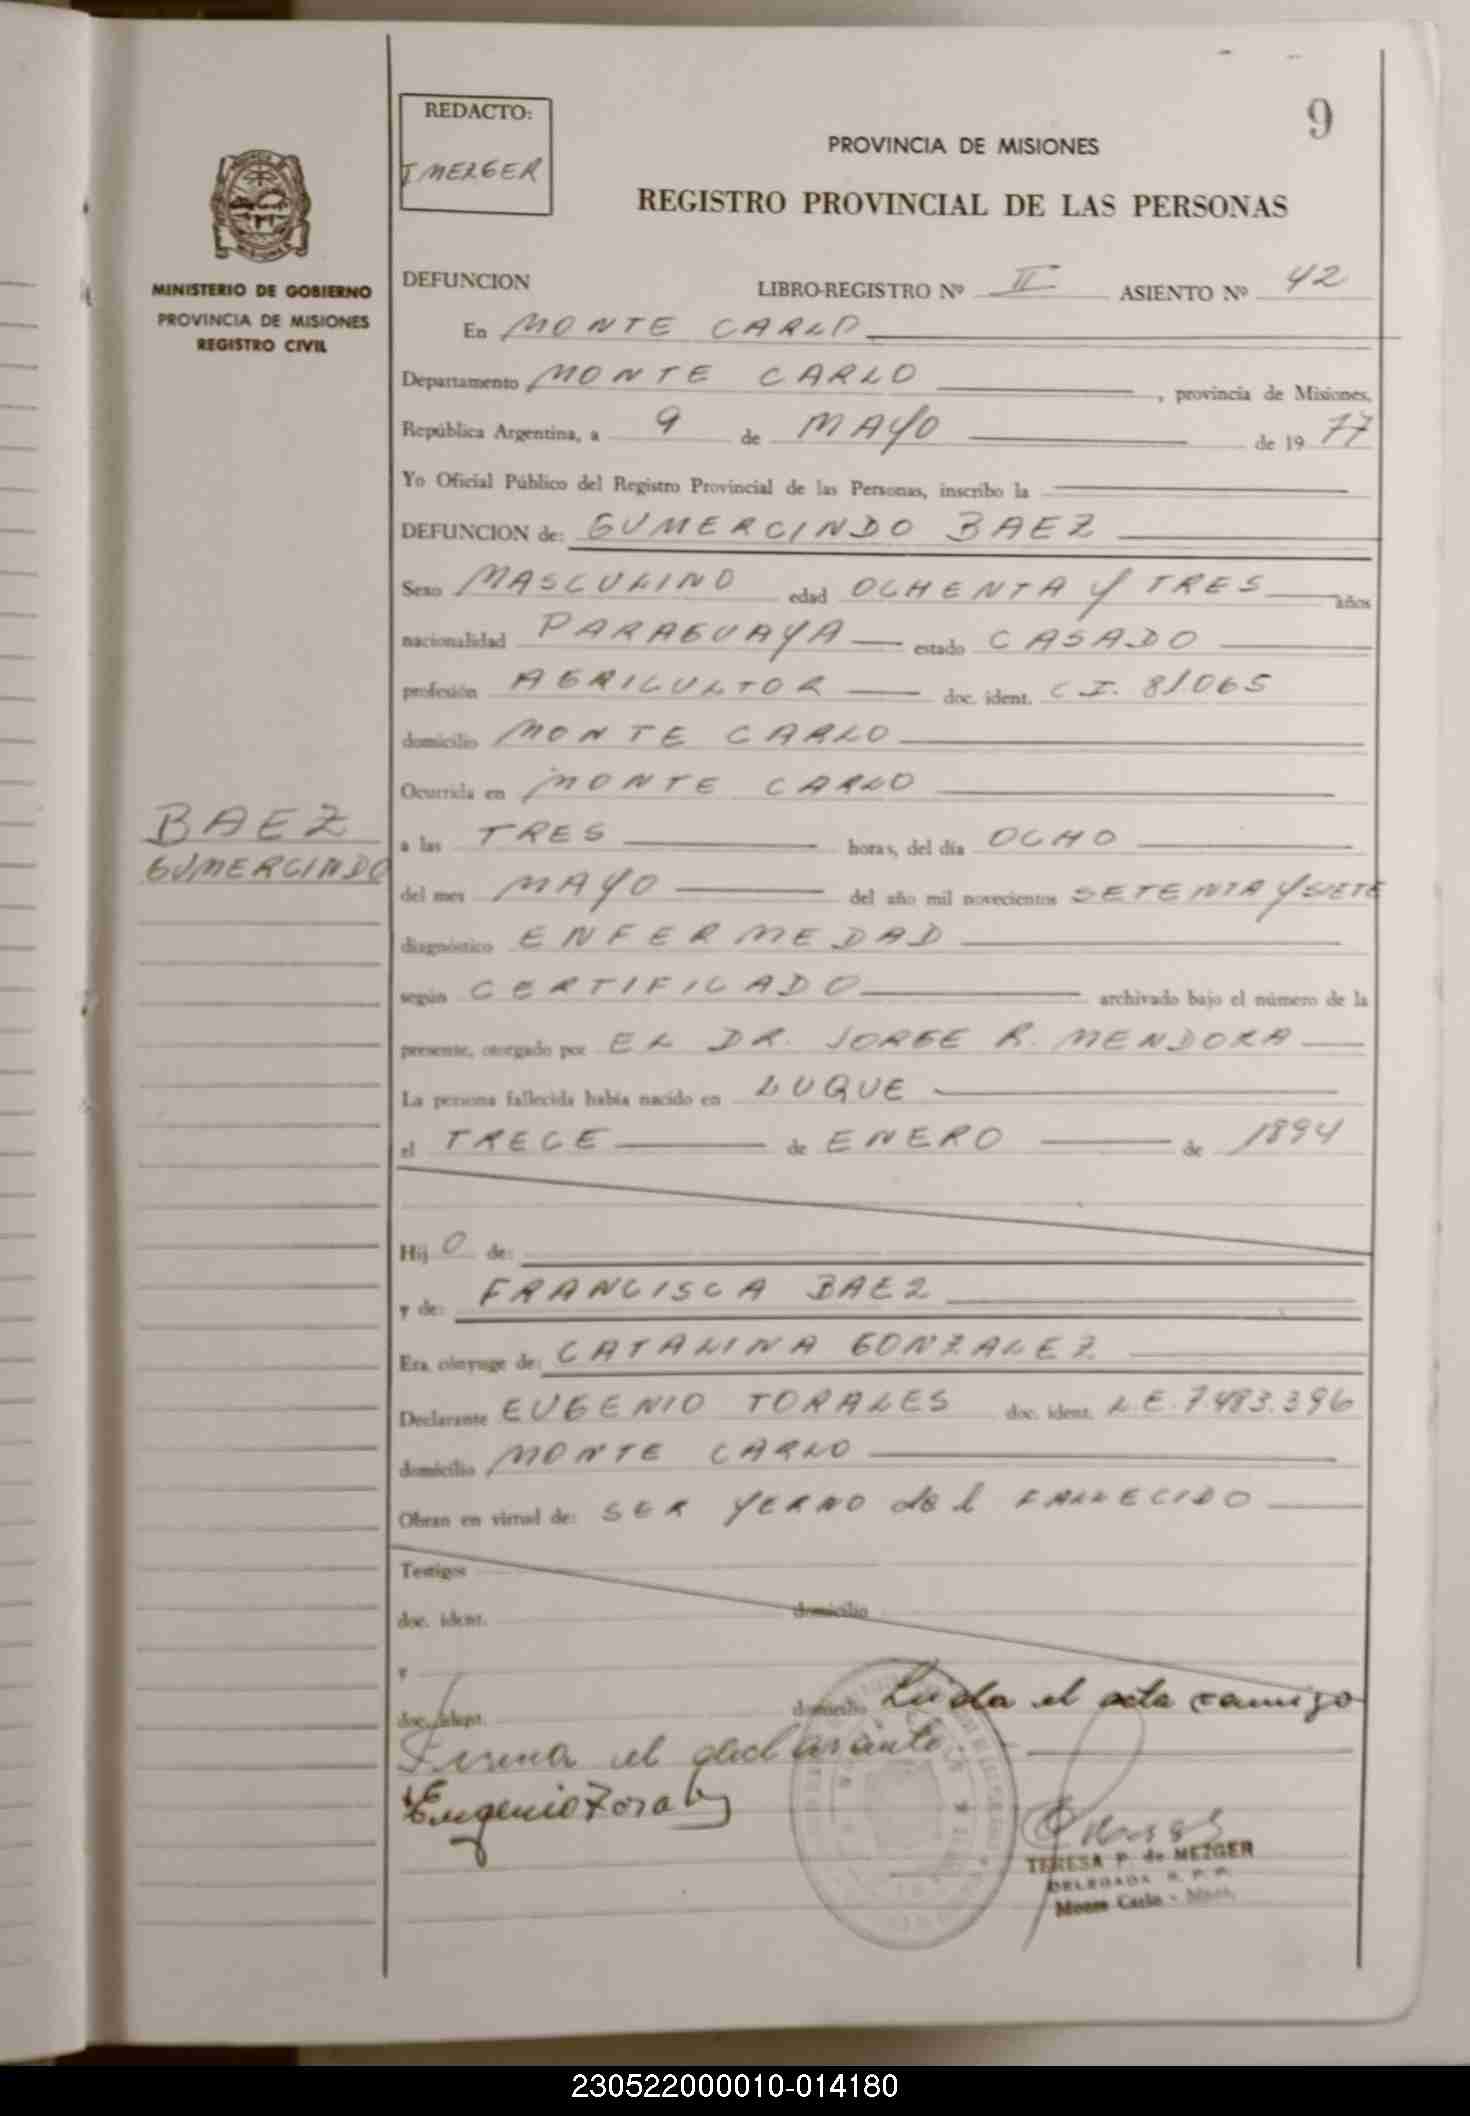 9
REDACTO:
T MEZGER
PROVINCIA DE MISIONES
REGISTRO PROVINCIAL DE LAS PERSONAS
MINISTERIO DE GOBIERNO
PROVINCIA DE MISIONES
REGISTRO CIVIL
DEFUNCION LIBRO-REGISTRO Nº II ASIENTO Nº 42
En MONTE CARLO
Departamento MONTE CARLO, provincia de Misiones,
República Argentina, a 9 de MAYO de 1977
Yo Oficial Público del Registro Provincial de las Personas, inscribo la
DEFUNCION de: GUMERCINDO BAEZ
Sexo MASCULINO edad OCHENTA Y TRES años
nacionalidad PARAGUAYA estado CASADO
profesión AGRICULTOR doc. ident. C I. 81065
domicilio MONTE CARLO
Ocurrida en MONTE CARLO
BAEZ
GUMERCINDO
a las TRES horas, del día OCHO
del mes MAYO del año mil novecientos SETENTA Y SIETE
diagnóstico ENFERMEDAD
según CERTIFICADO archivado bajo el número de la
presente, otorgado por EL DR. JORGE R. MENDOZA
La persona fallecida había nacido en LUQUE
el TRECE de ENERO de 1894
Hij O de:
y de: FRANCISCA BAEZ
Era cónyuge de: CATALINA GONZALEZ
Declarante EUGENIO TORALES doc. ident. L.E. 7.483.396
domicilio MONTE CARLO
Obran en virtud de: SER YERNO del FALLECIDO
Testigos
doc. ident. domicilio
y
doc. ident. domicilio Leida el acta comigo
Firma el declarante.
Eugenio Torales
TERESA P. de MEZGER
DELEGADA R. P. P.
Monte Carlo - Mnes.
230522000010-014180